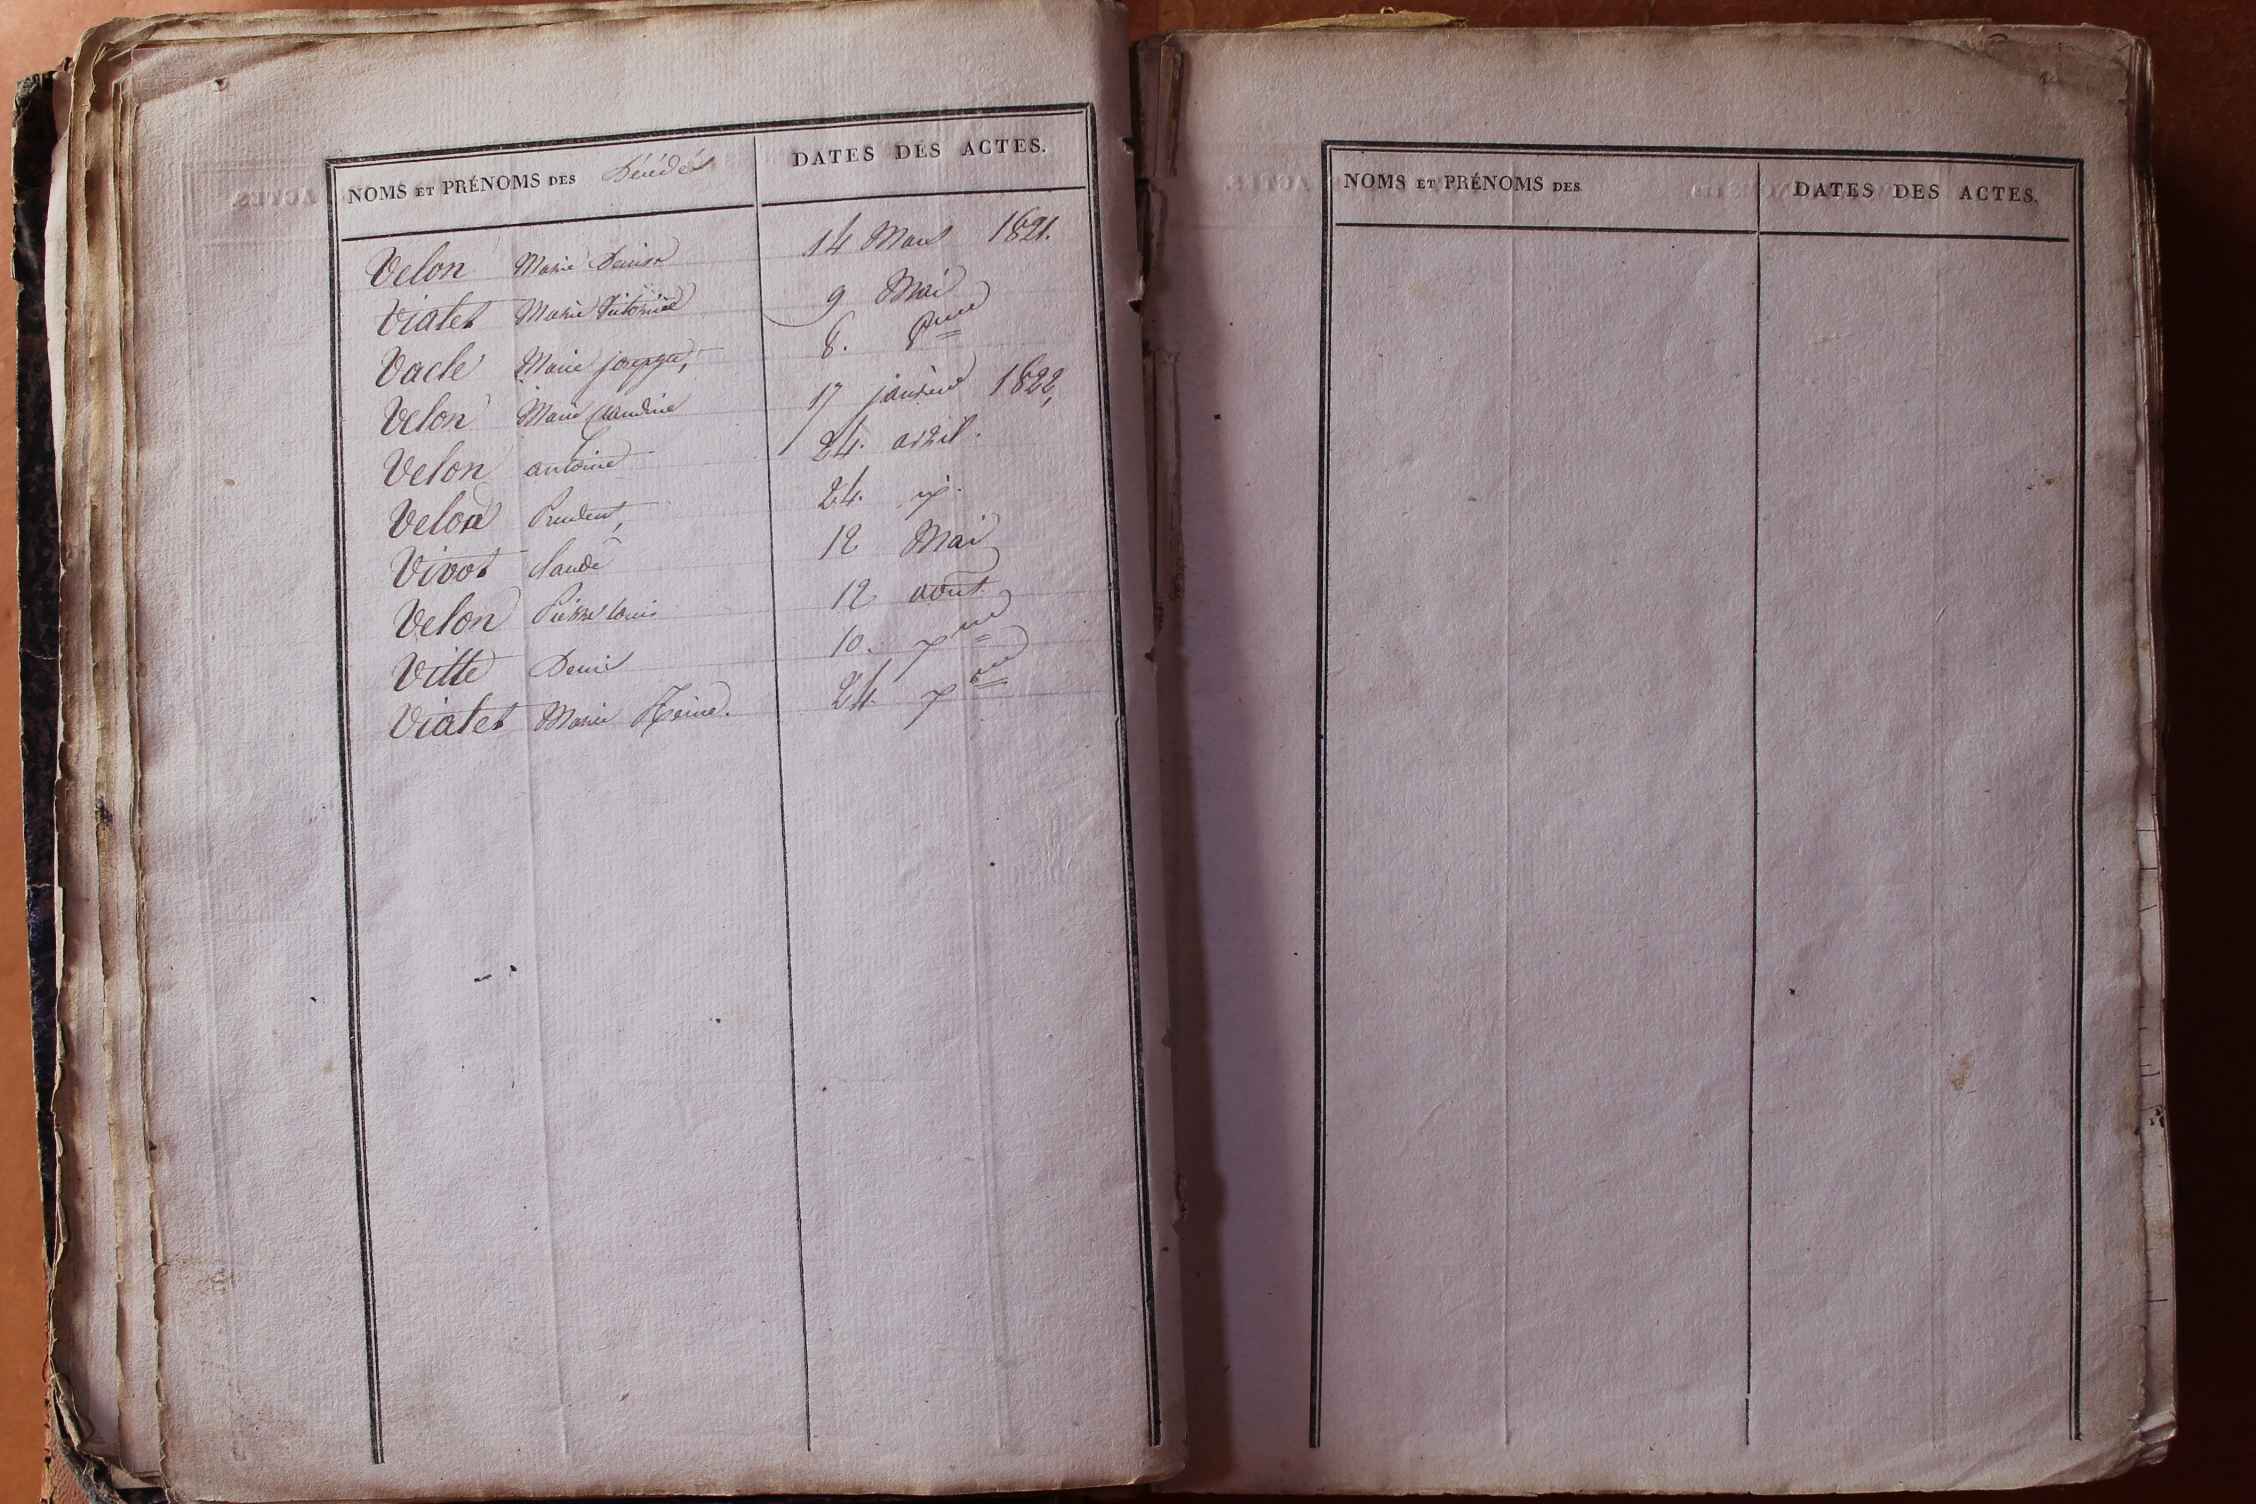 NOMS ET PRÉNOMS DES Décédés DATES DES ACTES.
Velon Marie Denise 14 Mars 1821.
Vialet Marie 9 Mai
Vaclé Marie josephe, 8. 8bre
Velon Marie Claudine 17 janvier 1822,
Velon antoine 24. avril.
Velon Prudent, 24.
Vivot Claude 12 Mai
Velon Pierre Louis 12 aout
Vitte Denis 10. 7bre
Vialet Marie Reine. 24. 7bre
NOMS ET PRÉNOMS DES DATES DES ACTES.